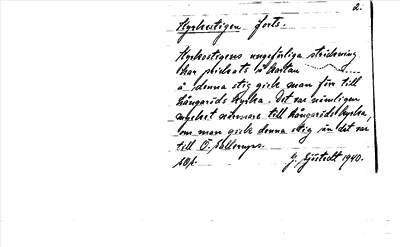 2.
Kyrkostigen forts.
Kyrkostigens ungefärliga sträckning
har prickats på kartan .....
å denna stig gick man förr till
Långaröds kyrka. Det var nämligen
mycket närmare till Långaröds kyrka,
om man gick denna stig än det var
till Ö. Sallerups.
sBpl.
G. Sjöstedt 1940.